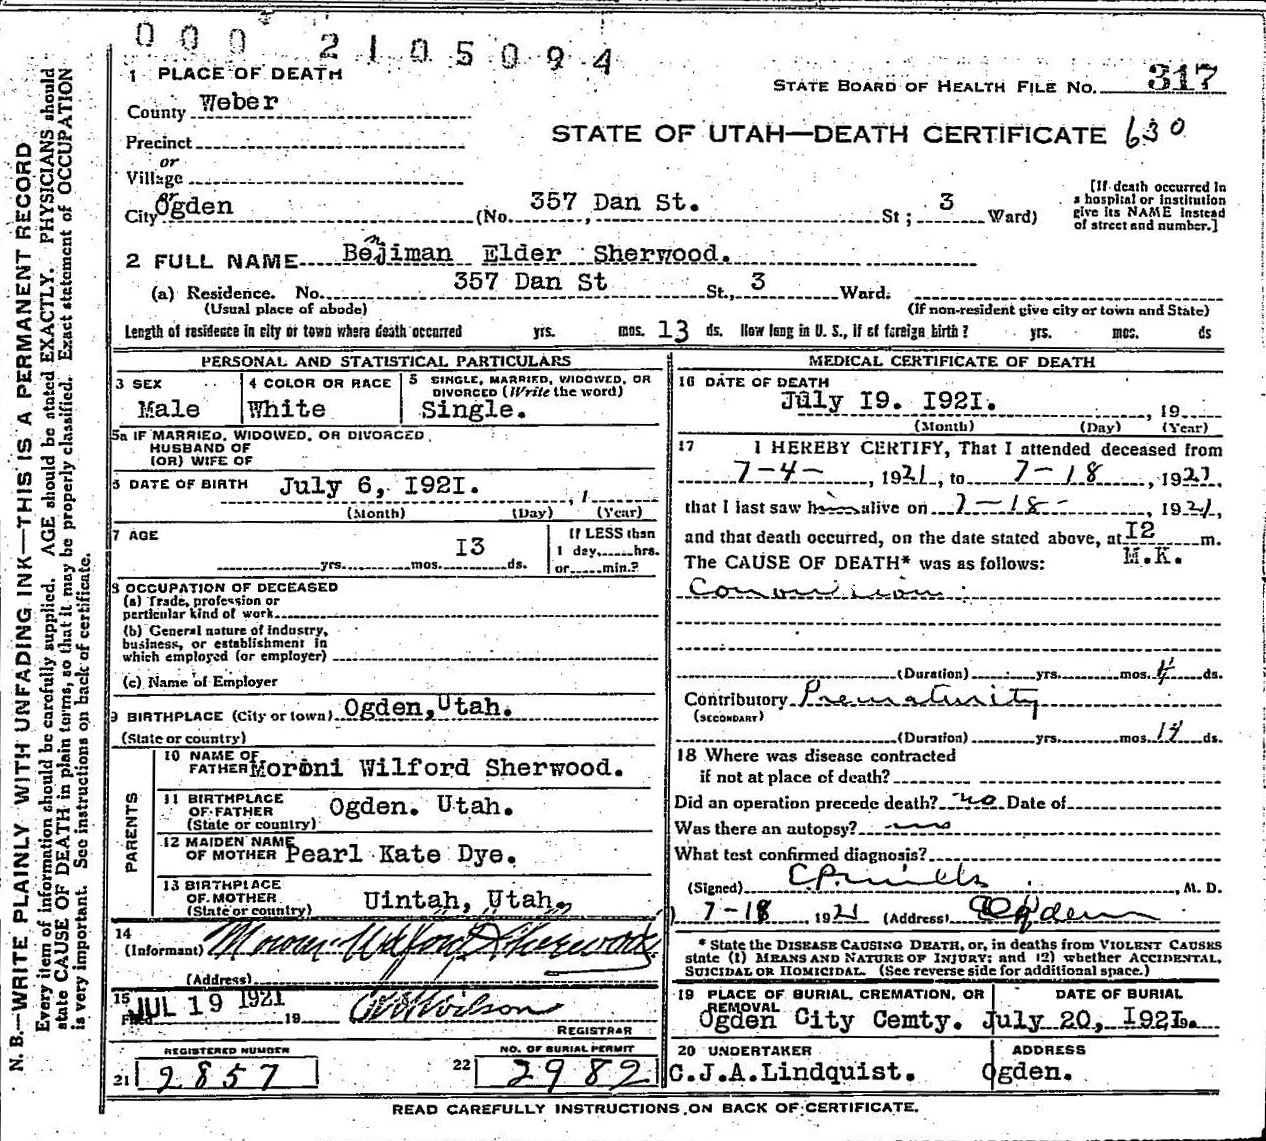 000 2105094
1 PLACE OF DEATH
STATE BOARD OF HEALTH FILE NO. 317
County Weber
STATE OF UTAH—DEATH CERTIFICATE 630
Precinct
or
Village
or
City Ogden (No. 357 Dan St. St; 3 Ward)
[If death occurred in a hospital or institution give its NAME instead of street and number.]
2 FULL NAME Bejiman Elder Sherwood.
n
(a) Residence. No. 357 Dan St St., 3 Ward.
(Usual place of abode) (If non-resident give city or town and State)
Length of residence in city or town where death occurred yrs. mos. 13 ds. How long in U. S., if of foreign birth? yrs. mos. ds
PERSONAL AND STATISTICAL PARTICULARS
3 SEX
Male
4 COLOR OR RACE
White
5 SINGLE, MARRIED, WIDOWED, OR
DIVORCED (Write the word)
Single.
5a IF MARRIED, WIDOWED, OR DIVORCED
HUSBAND OF
(OR) WIFE OF
6 DATE OF BIRTH July 6, I92I.
(Month) (Day) (Year)
7 AGE
I3
yrs. mos. ds.
If LESS than
1 day, hrs.
or min.?
8 OCCUPATION OF DECEASED
(a) Trade, profession or
particular kind of work
(b) General nature of industry,
business, or establishment in
which employed (or employer)
(c) Name of Employer
9 BIRTHPLACE (City or town) Ogden, Utah.
(State or country)
PARENTS
10 NAME OF
FATHER Moroni Wilford Sherwood.
11 BIRTHPLACE
OF FATHER
(State or country)
Ogden. Utah.
12 MAIDEN NAME
OF MOTHER Pearl Kate Dye.
13 BIRTHPLACE
OF MOTHER
(State or country)
Uintah, Utah,
14
(Informant) Moroni Wilford Sherwood
(Address)
15
Filed JUL 19 1921 19
W Wilson
REGISTRAR
REGISTERED NUMBER
21 2857
NO. OF BURIAL PERMIT
22 2982
MEDICAL CERTIFICATE OF DEATH
16 DATE OF DEATH
July I9. I92I. , 19
(Month) (Day) (Year)
17 I HEREBY CERTIFY, That I attended deceased from
7-4- , 1921, to 7-18 , 1921,
that I last saw him alive on 7-18- , 1921,
and that death occurred, on the date stated above, at I2 m.
M.K.
The CAUSE OF DEATH* was as follows:
(Duration) yrs. mos. 4 ds.
Contributory Prematurity
(SECONDARY)
(Duration) yrs. mos. 14 ds.
18 Where was disease contracted
if not at place of death?
Did an operation precede death? no Date of
Was there an autopsy? no
What test confirmed diagnosis?
(Signed) , M. D.
7-18 , 1921 (Address) Ogden
* State the DISEASE CAUSING DEATH, or, in deaths from VIOLENT CAUSES
state (1) MEANS AND NATURE OF INJURY; and (2) whether ACCIDENTAL,
SUICIDAL OR HOMICIDAL. (See reverse side for additional space.)
19 PLACE OF BURIAL, CREMATION, OR
REMOVAL
Ogden City Cemty.
DATE OF BURIAL
July 20, I92I.
20 UNDERTAKER
C.J.A.Lindquist.
ADDRESS
Ogden.
READ CAREFULLY INSTRUCTIONS ON BACK OF CERTIFICATE.
N. B.—WRITE PLAINLY WITH UNFADING INK—THIS IS A PERMANENT RECORD
Every item of information should be carefully supplied. AGE should be stated EXACTLY. PHYSICIANS should
state CAUSE OF DEATH in plain terms, so that it may be properly classified. Exact statement of OCCUPATION
is very important. See instructions on back of certificate.